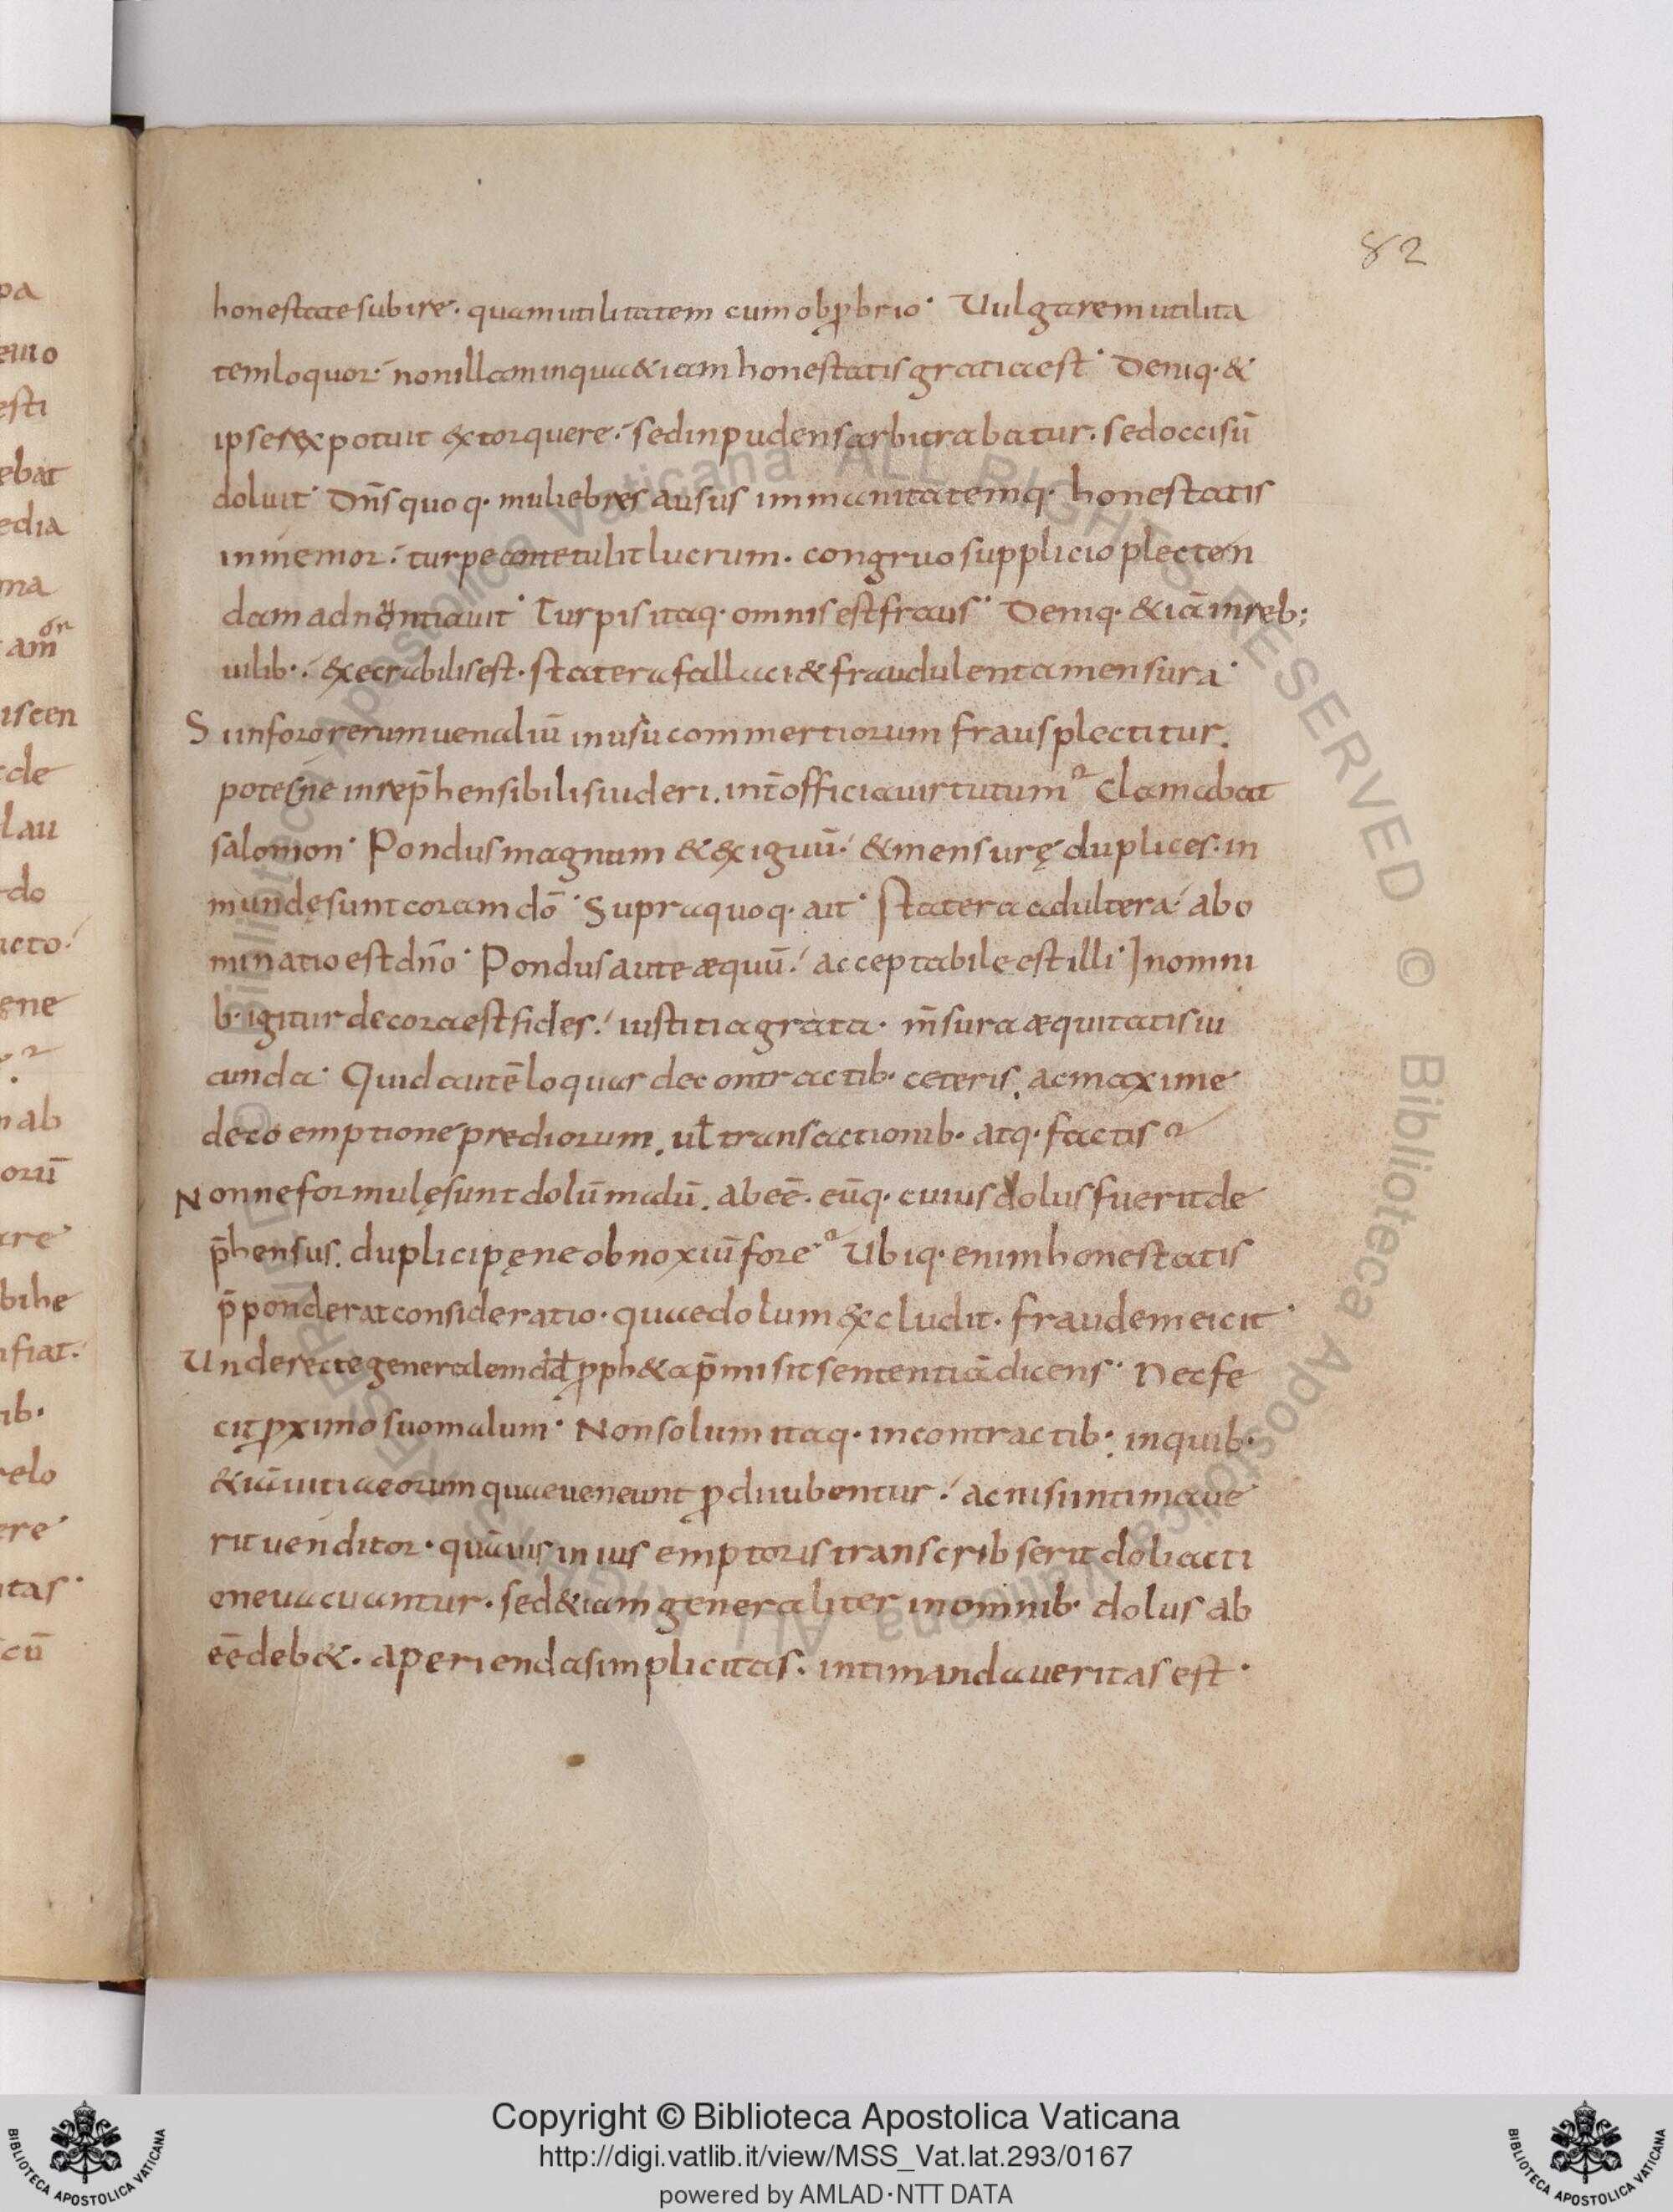 82
honestatesubire· quamutilitatem cumobꝓbrio· Uulgaremutilita
temloquor· nonillaminqua&iam honestatisgratiaest· Deniq·&
ipserexpotuit extorquere· sedinpudensarbitrabatur· sedoccisū
doluit· Dn̄s quoq· muliebres ausus immanitatemq· honestatis
inmemor· turpe lucrum· congruosupplicioplecten
dam Turpisitaq· omnisestfraus· Deniq· &iāinreb;
uilib·: execrabilisest· staterafallaci&fraudulentamensura·
S iinfororerumuenaliū inusucommertiorum frausplectitur.
potestne inrep̄hensibilisiuideri. int̄officiauirtutum? Clamabat
salomon· Pondusmagnum &exiguū· &mensuręduplices· in
mundęsuntcoramdō· Supraquoq· ait· Stateraadultera· abo
minatioestdn̄o· Pondusauteæquū· acceptabileestilli· Inomni
b· igiturdecoraestfides· iustitiagrata· m̄suraæquitatisiu
cunda· Quidautēloquar decontractib· ceteris. acmaxime
decoemptioneprediorum. uł transactionib· atq· factis?
Nonneformulęsuntdolūmalū. abeē· eūq· cuiusdolusfueritde
p̄hensus. duplicipęneobnoxiūfore? Ubiq· enimhonestatis
p̄ponderatconsideratio· quaedolumexcludit· fraudemeicit·
Underectegeneralemdd̄ ꝓph&ap̄misitsententiādicens· Necfe
citꝓximosuomalum· Nonsolumitaq· incontractib· inquib·
&iāuitiaeorumquaeueneunt ꝓdiiubentur· acnisiintimaue
rituenditor· quāuisiniusemptoristranscribseritdoliacti
oneuacuantur· sed&iamgeneraliterinomnib· dolusab
eēdeb&· aperiendasimplicitas· intimandaueritasest·
pa
esti
ebat
edia
ma
or
am̄
iscen
de
lau
do
acto·
ene
?
ab
orū
are
bihe
fiat·
ib·
elo
ere
itas·
cū
© Biblioteca Apostolica Vaticana ALL RIGHTS RESERVED © Biblioteca Apostolica Vaticana ALL RIGHTS RESERVED
Copyright © Biblioteca Apostolica Vaticana
http://digi.vatlib.it/view/MSS_Vat.lat.293/0167
powered by AMLAD·NTT DATA
BIBLIOTECA APOSTOLICA VATICANA
BIBLIOTECA APOSTOLICA VATICANA